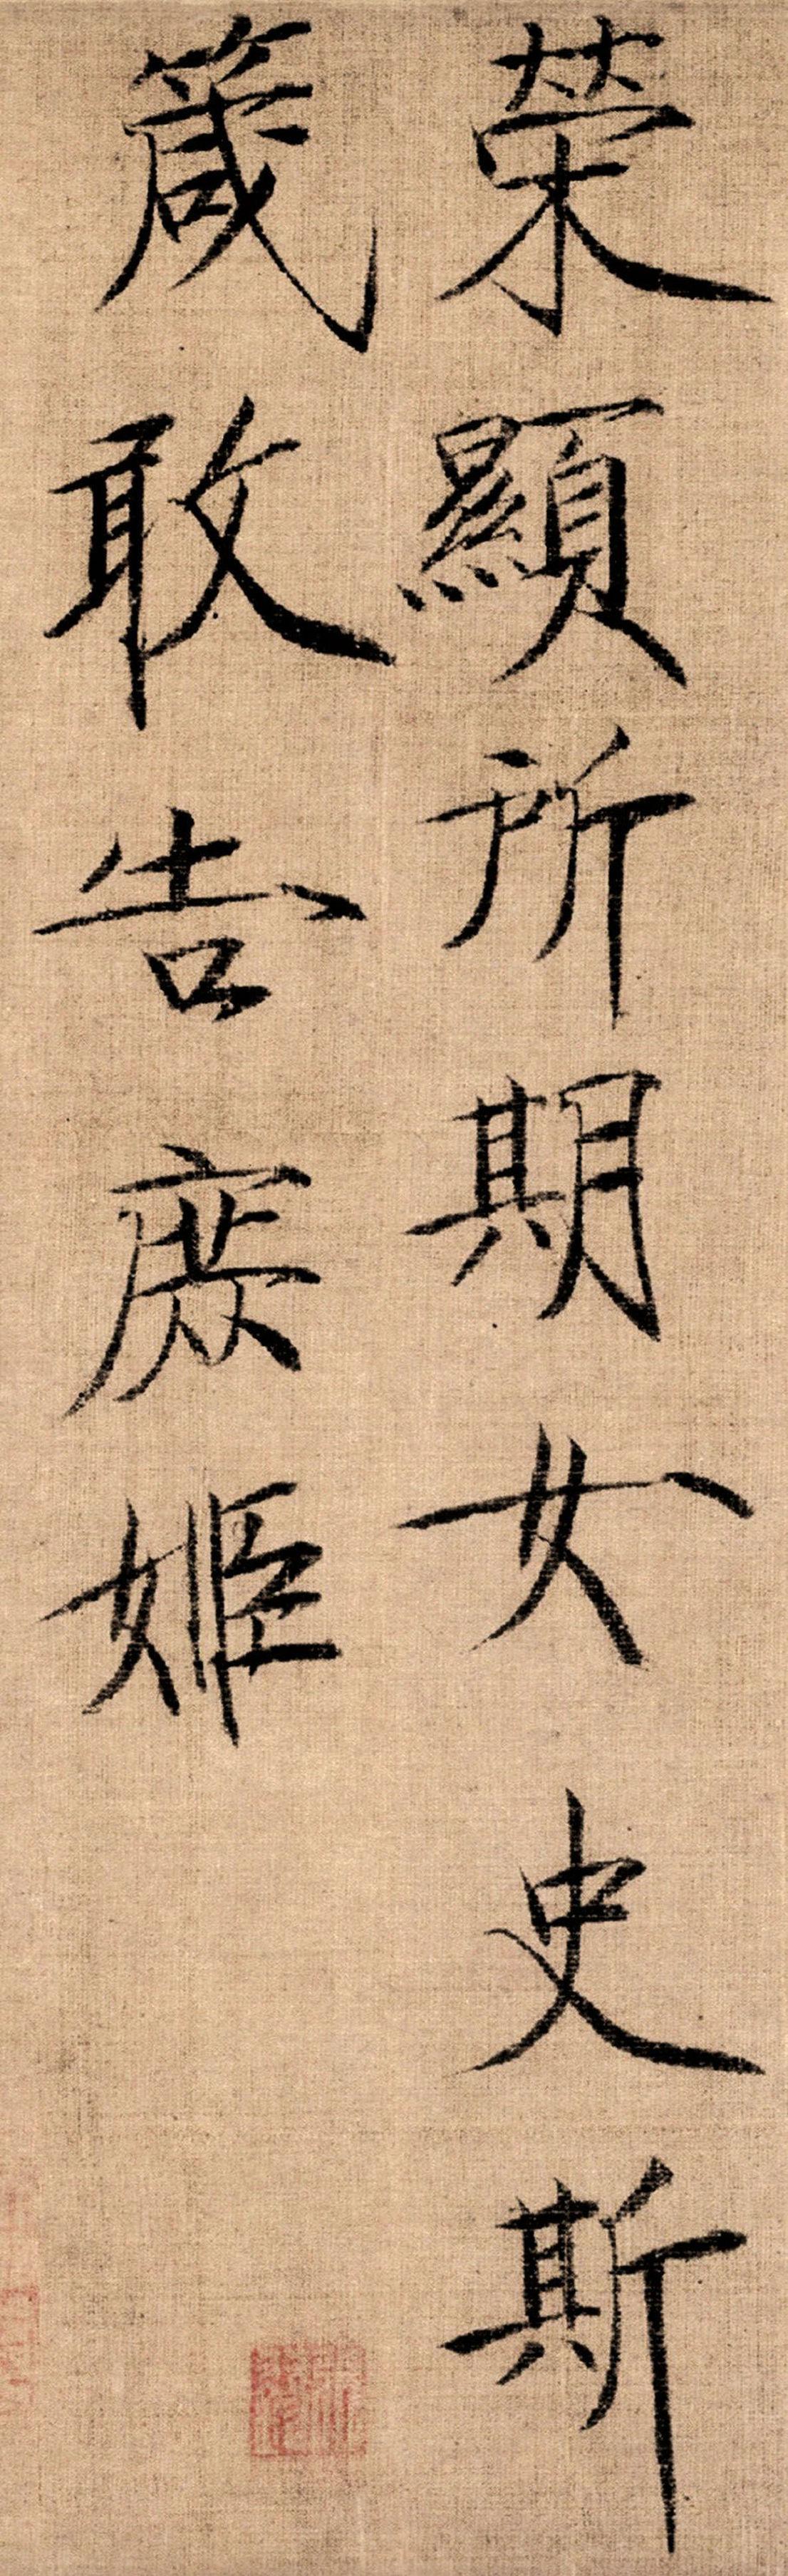 榮顯所期女史斯
箴敢告庶姬